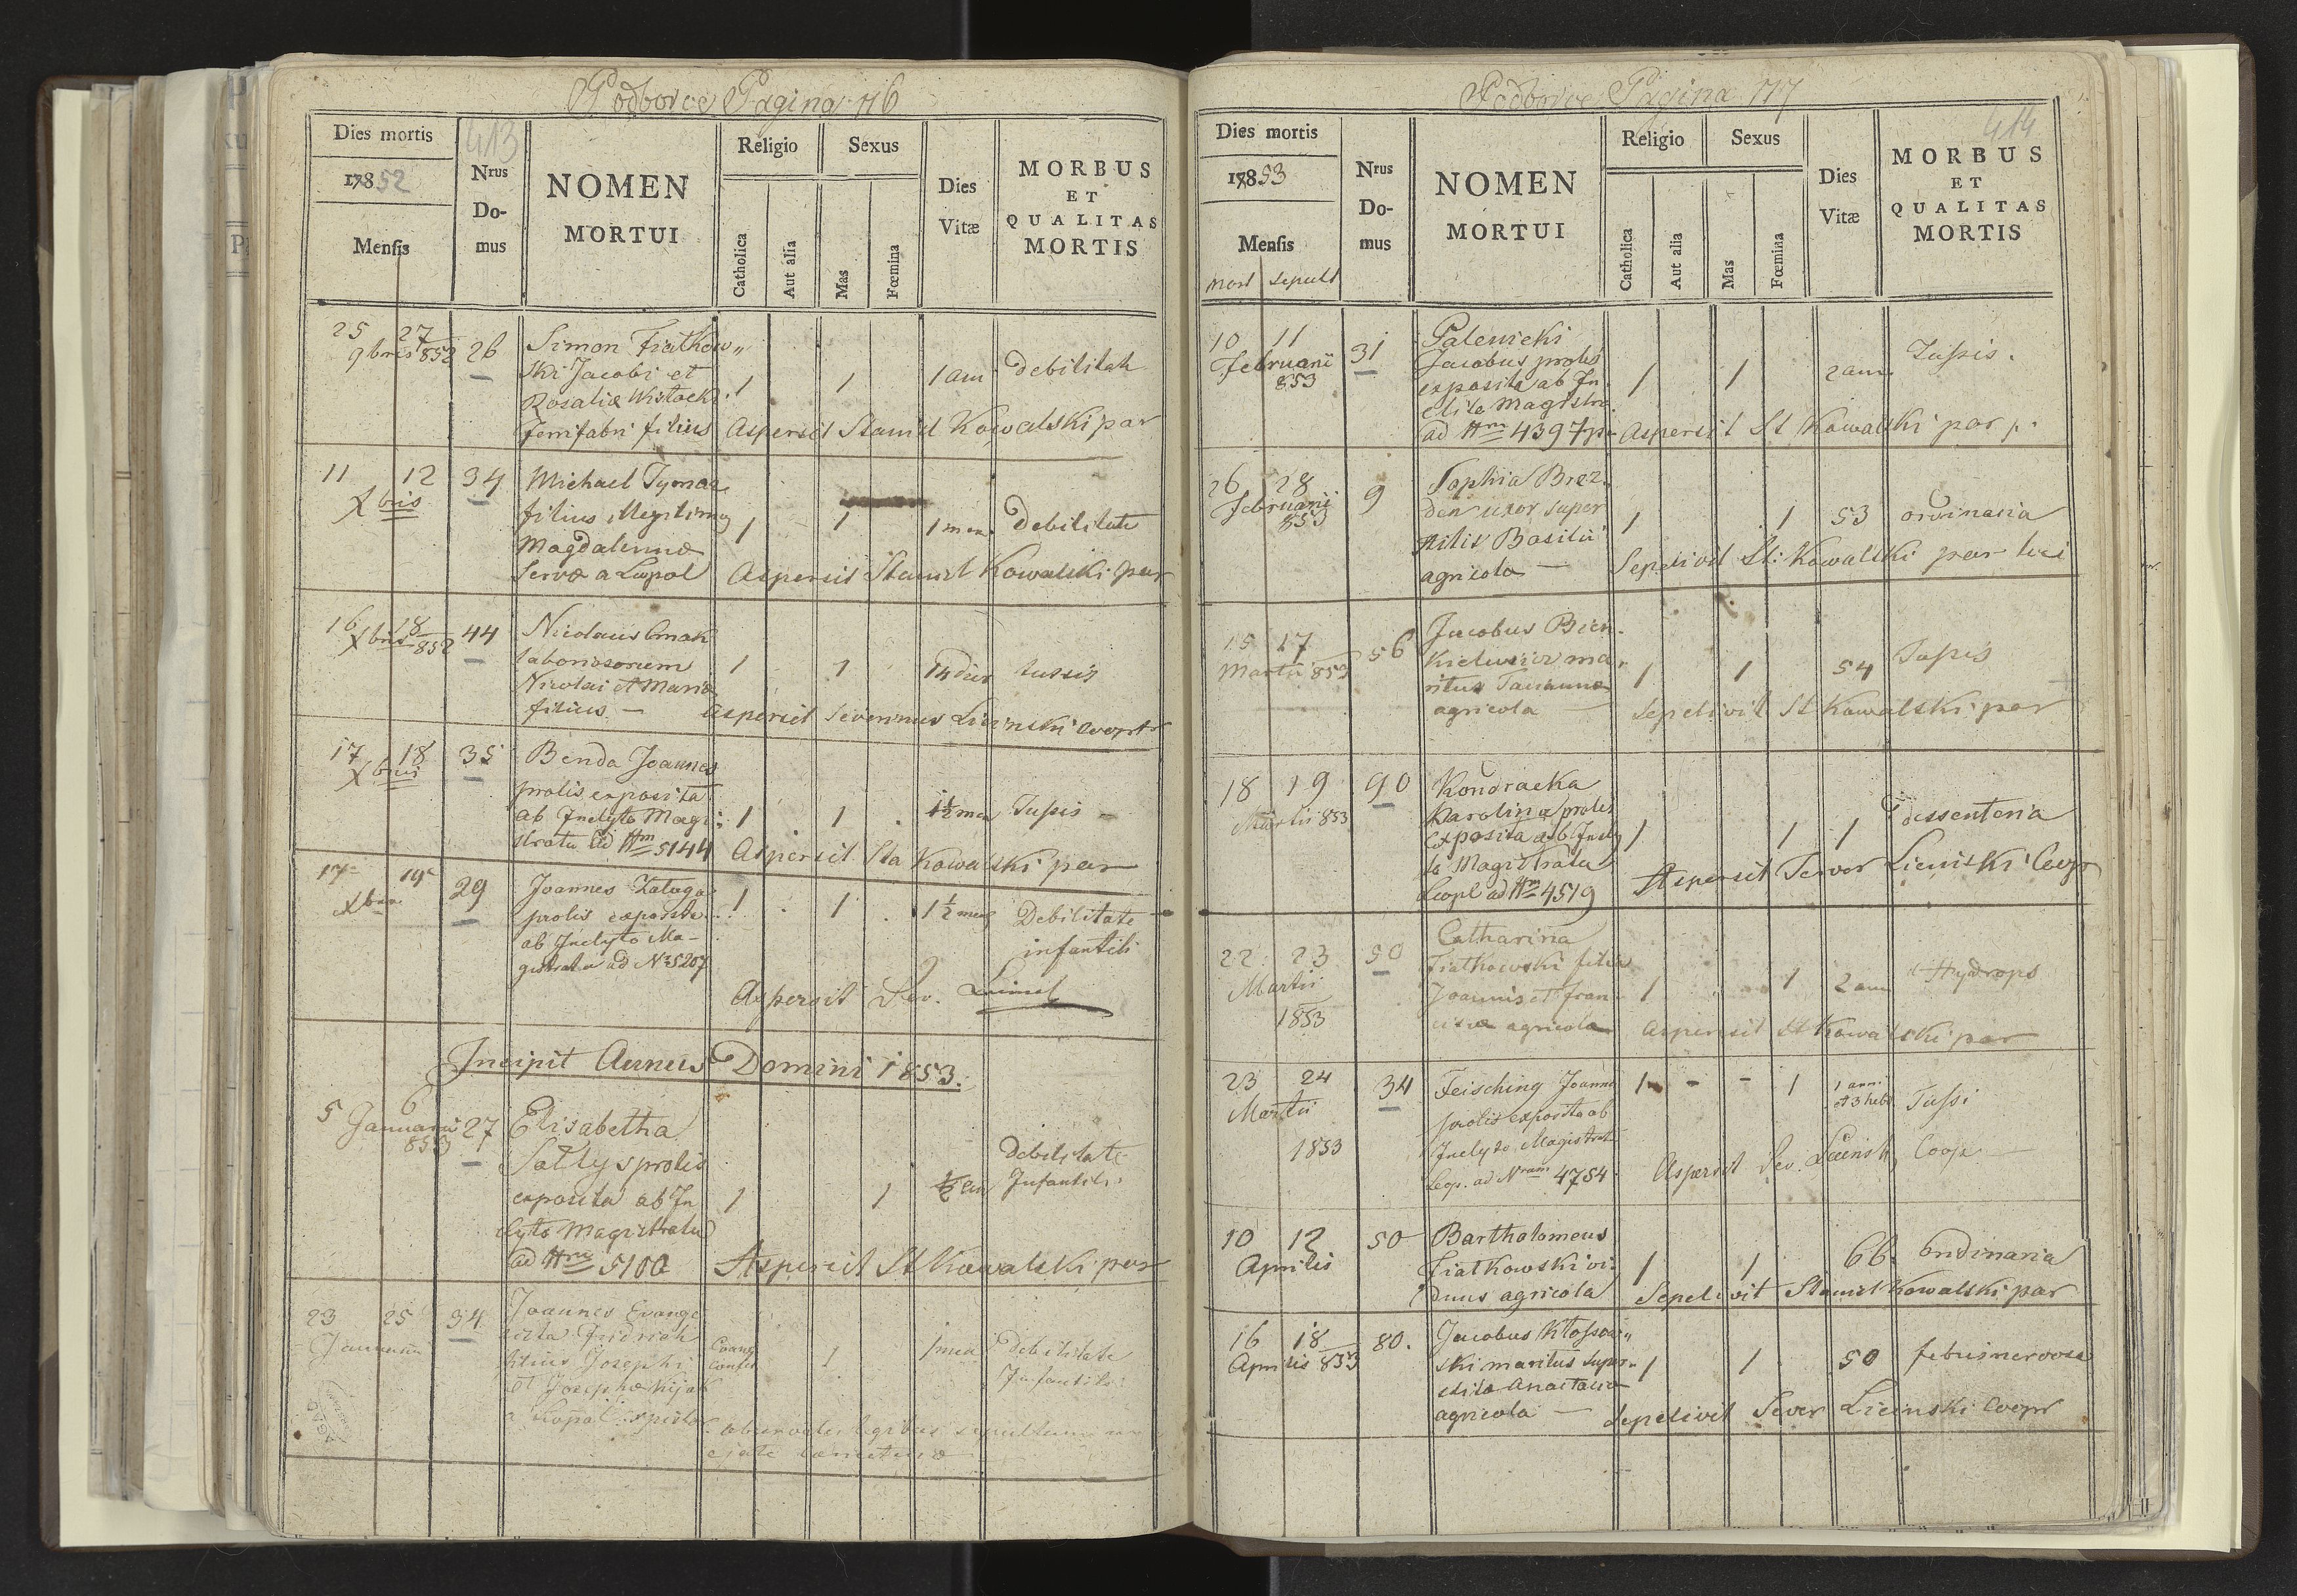 Podborce Pagina 116
413
Dies mortis
1852
Mensis
Nrus
Do-
mus
NOMEN
MORTUI
Religio
Catholica
Aut alia
Sexus
Mas
Fœmina
Dies
Vitæ
MORBUS
ET
QUALITAS
MORTIS
25 27
9bris 852 26
Simon Fiatkow„
ski Jacobi et
Rosaliæ
filius
1 1 1 am debilitate
Aspersit Stanisl Kowalski par
11 12 34
Xbris
Michael Tymac
filius illegitimus
Magdalennæ
servæ a Leopol
1 1 1 men. Debilitate
Aspersit Stanisl Kowalski par
16 18 44
Xbris 852
Nicolaus
laboriosorum
Nicolai et Mariæ
filius —
1 1 14 dies tussis
Aspersit Severinus Licinski Coopr
17 18 35
Xbris
Benda Joannes
prolis exposita
ab Inclyto Magi:
stratu ad Nrm 5144
1 1 1½ men Tussis
Aspersit Sta Kowalski par
17 19 29
Xbris
Joannes Zaluga
prolis exposita
ab Inclyto Ma-
gistratu ad Nr 5207
1 1 1½ mens Debilitate
infantili
Aspersit Sev. Licinsk
Incipit Annus Domini 1853.
5 6
Januarii 27
853
Elisabetha
prolis
exposita ab In
clyto Magistratu
ad Nrm 5100
1 1 ½ an
Debilitate
Infantili
Aspersit St Kowalski par
23 25 34
Januarii
Joannes Evange
lista Fridrich
filius Josephi
et Josephæ Kijak
Evang
Confes
1 1 men Debilitate
Infantili
legibus
Podborce Pagina 117
414
Dies mortis
1853
Mensis
mort sepult
Nrus
Do-
mus
NOMEN
MORTUI
Religio
Catholica
Aut alia
Sexus
Mas
Fœmina
Dies
Vitæ
MORBUS
ET
QUALITAS
MORTIS
10 11 31
Februarii
853
Palenicki
Jacobus prolis
exposita ab In
clito Magistra.
ad Nrm 4397
1 1 2 ann Tussis.
Aspersit St Kowalski par
26 28 9
Februarii
853
Sophia Brez
den uxor super
stitis Basilii
agricola —
1 1 53 ordinaria
Sepelivit St: Kowalski par loci
15 17 56
Martii 853
Jacobus Bien
ma
ritus
agricola
1 1 54 Tussis
Sepelivit St Kowalski par
18 19 90
Martii 853
Kondracka
Karolina proles
exposita ab Incly
to Magistratu
Leopl ad Nrm 4519
1 1 1 dessenteria
Aspersit Sever Licinski Coopr
22 23 50
Martii
1853
Catharina
Fiatkowski filia
Joannis et Fran
ciscæ agricola
1 1 2 ann Hydrops
Aspersit St Kowalski par
23 24 34
Martii
1853
Feisching Joanna
prolis exposita ab
Inclyto Magistratu
Leop. ad Nrum 4754.
1 - - 1 1 anni
et 3 hebd. Tussi
Aspersit Sev. Licinski Coop
10 12 50
Aprilis
Bartholomeus
Fiatkowski vi:
duus agricola
1 1 66. Ordinaria
Sepelivit Stanisl Kowalski par
16 18 80.
Aprilis 853
Jacobus Kłossow„
ski maritus super„
stitæ Anastasiæ
agricola —
1 1 50 febris nervosa
Sepelivit Sever Licinski Coopr